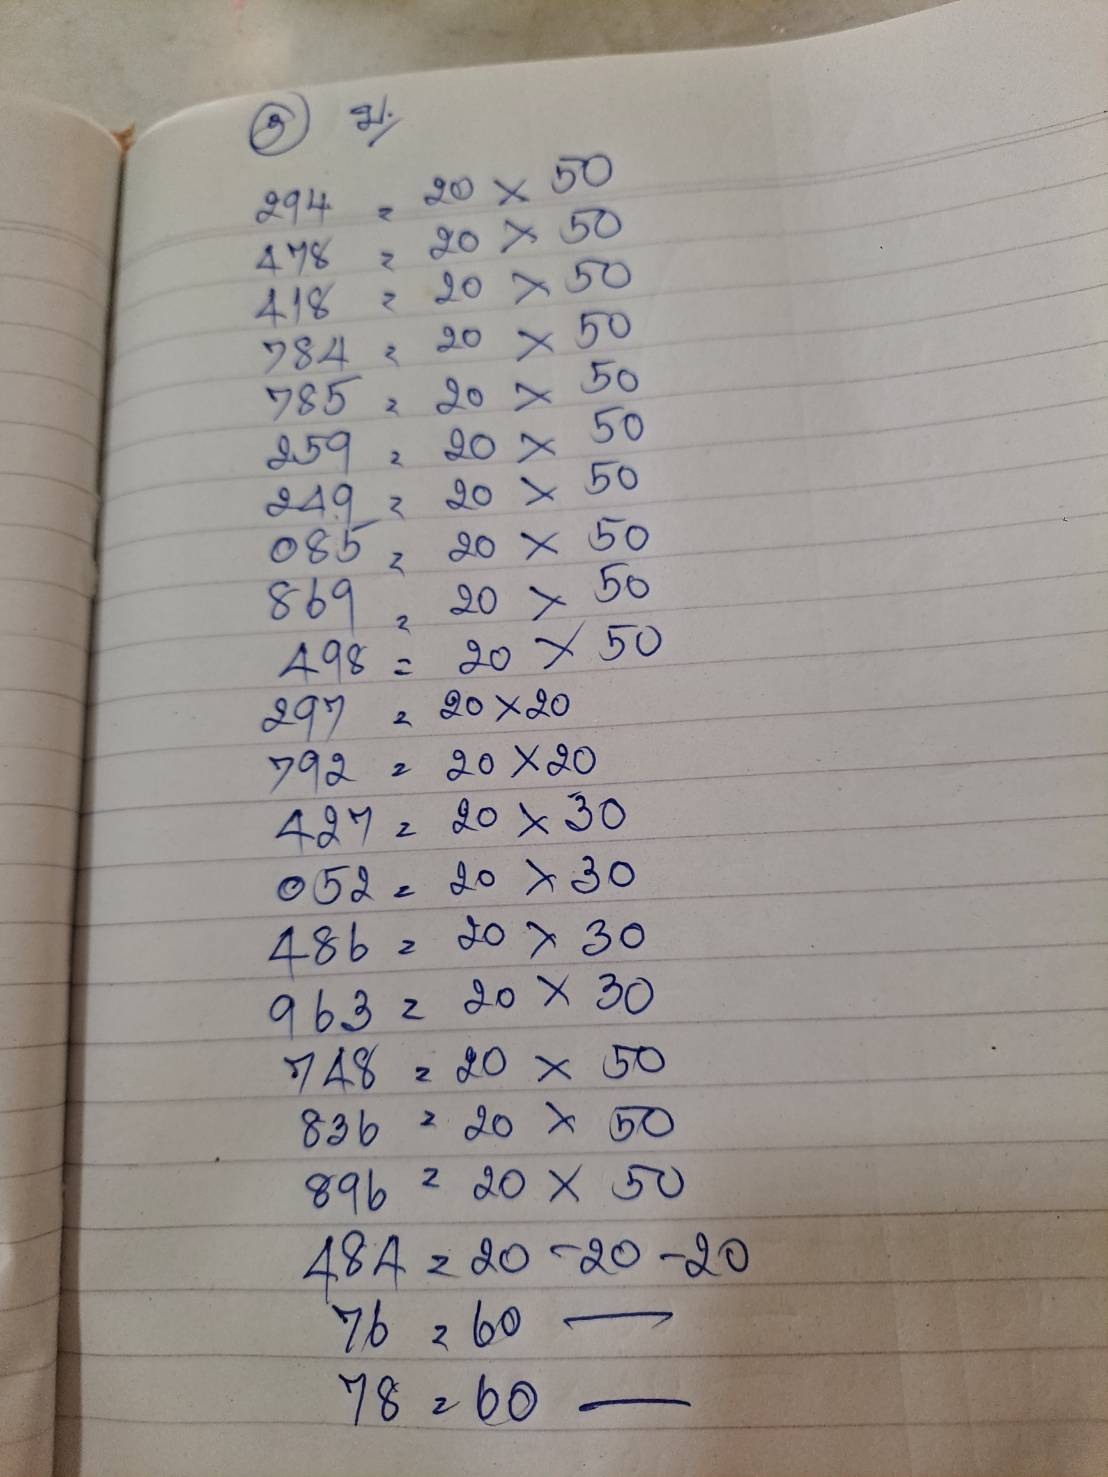 294 = 20 × 50
478 = 20 × 50
418 = 20 × 50
784 = 20 × 50
785 = 20 × 50
259 = 20 × 50
249 = 20 × 50
085 = 20 × 50
869 = 20 × 50
498 = 20 × 50
297 = 20 × 20
792 = 20 × 20
427 = 20 × 30
052 = 20 × 30
486 = 20 × 30
963 = 20 × 30
748 = 20 × 50
836 = 20 × 50
896 = 20 × 50
484 = 20 - 20 - 20
76 = 60 —
78 = 60 —